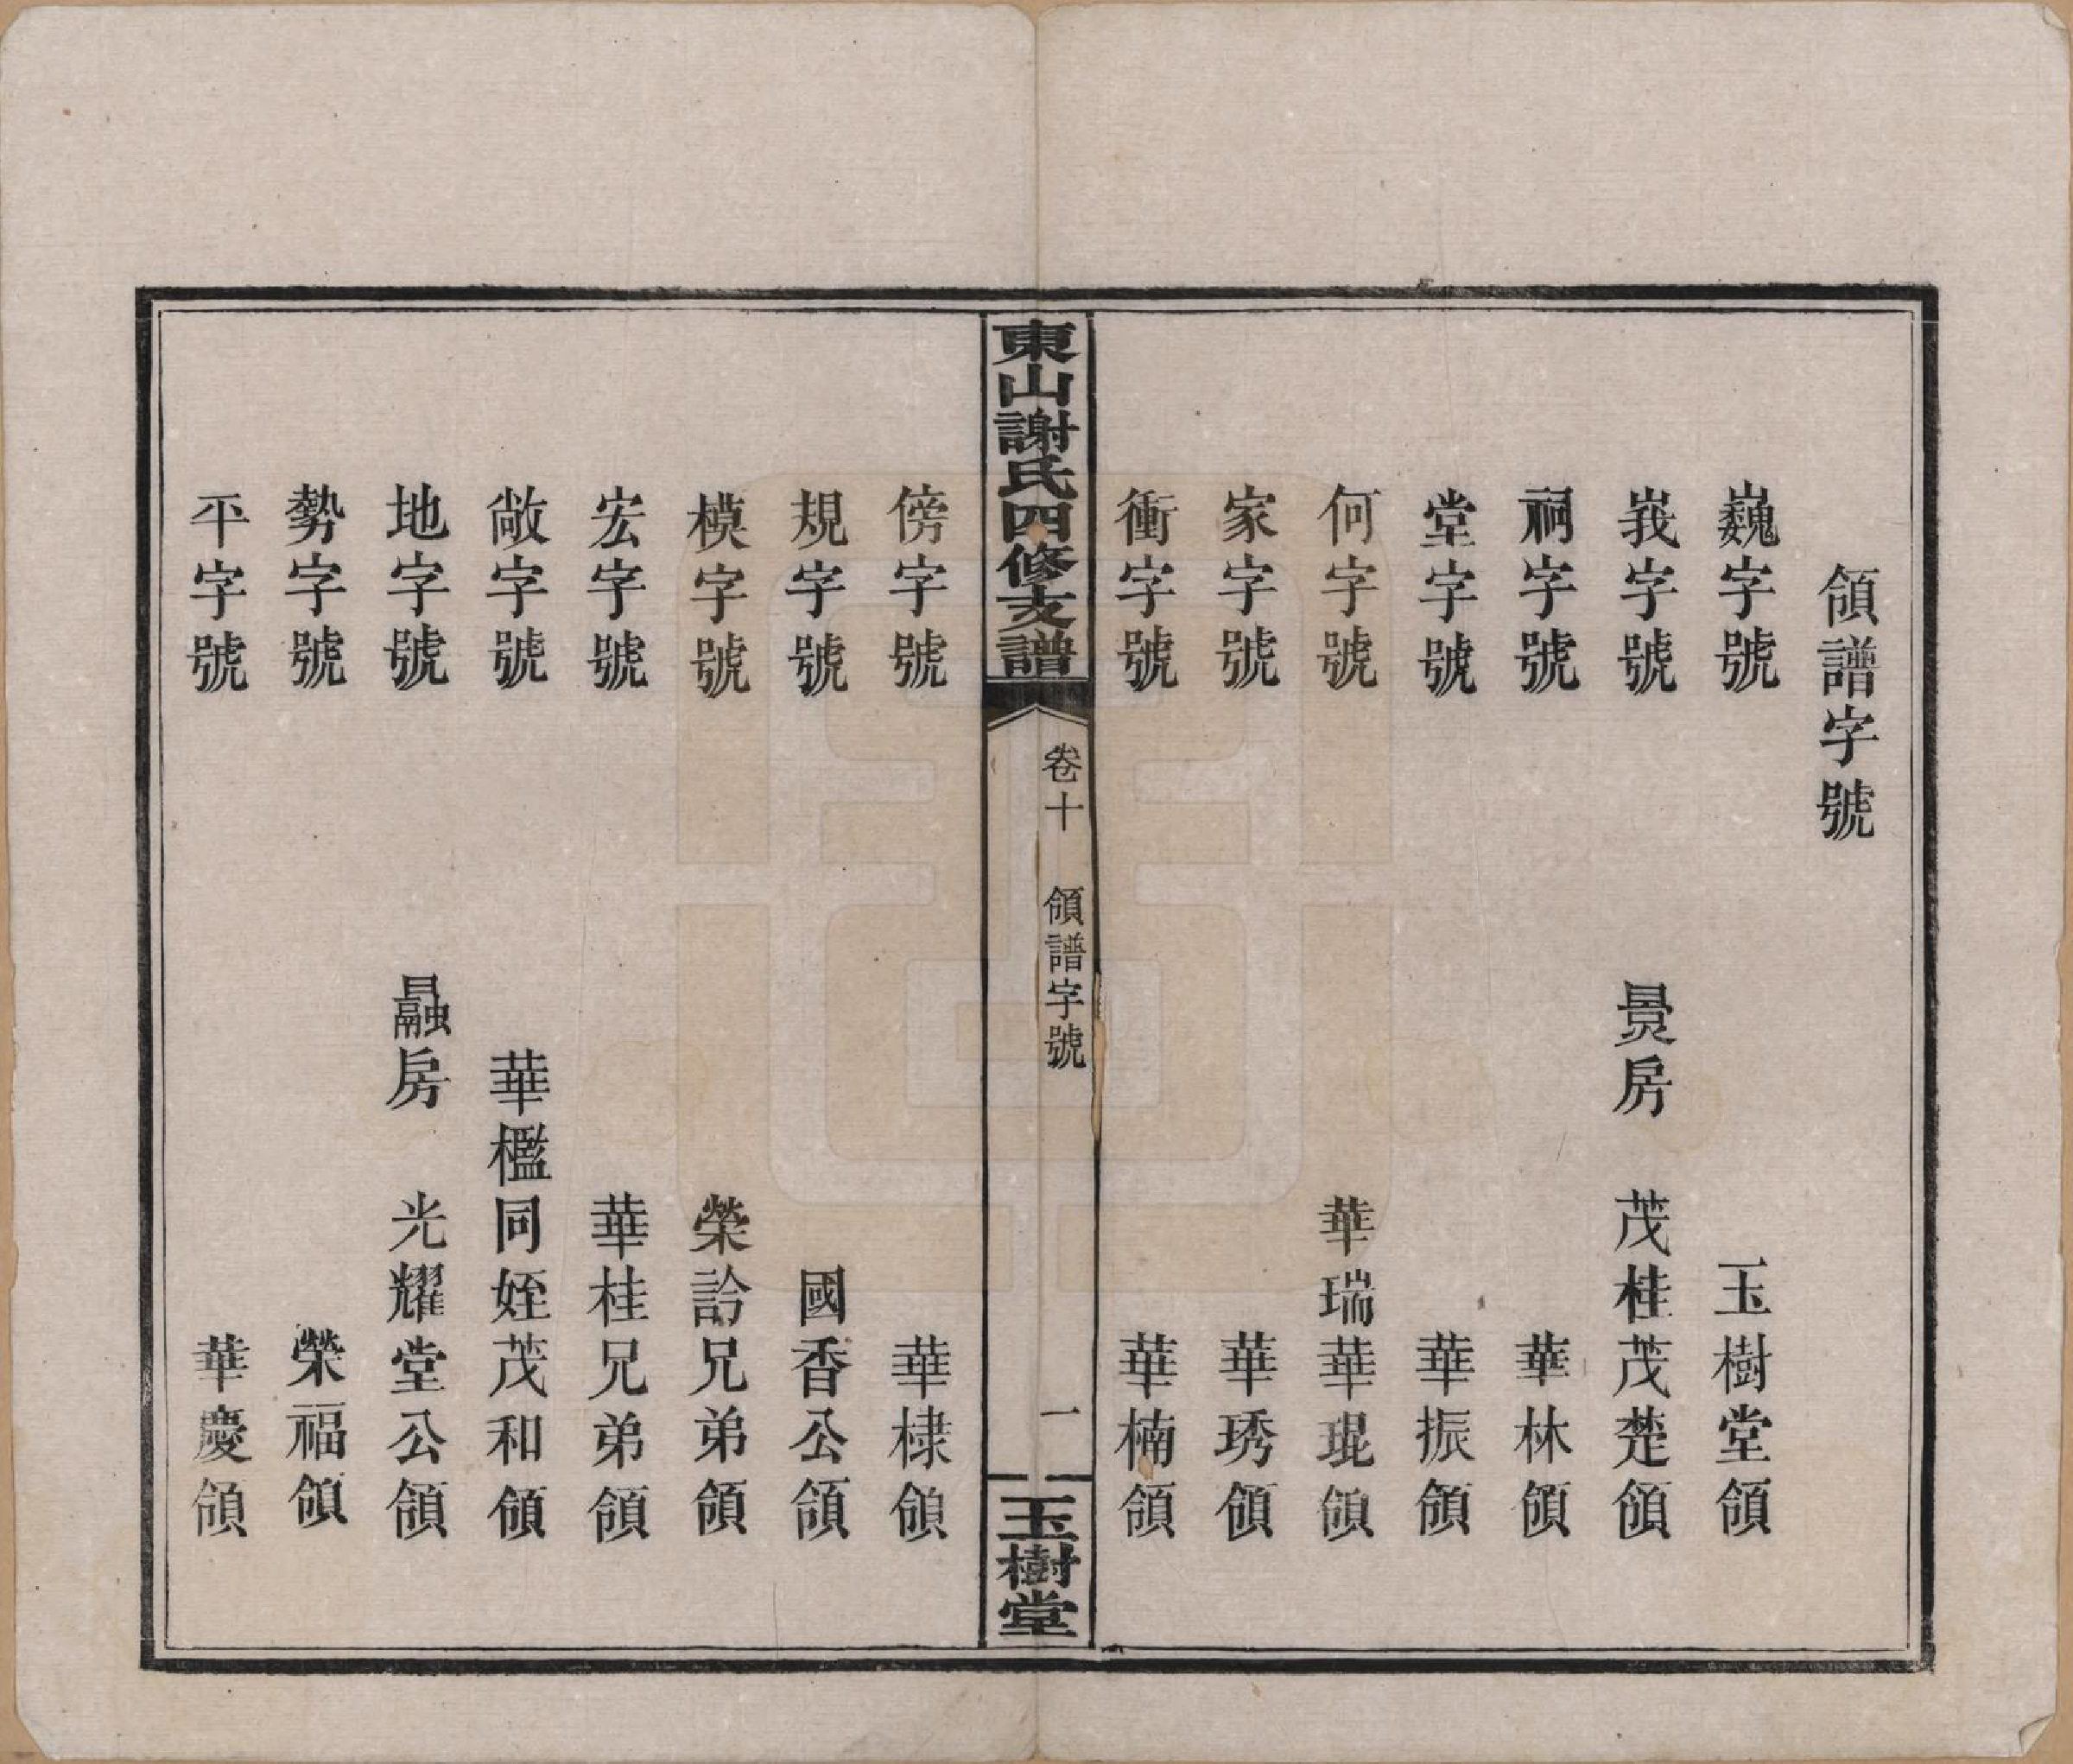 領譜字號
巍字號 玉樹堂領
峩字號 景房 茂桂茂楚領
祠字號 華林領
堂字號 華振領
何字號 華瑞華琨領
家字號 華琇領
衝字號 華楠領
東山謝氏四修支譜
卷十 領譜字號
一
玉樹堂
傍字號 華棣領
規字號 國香公領
模字號 榮診兄弟領
宏字號 華桂兄弟領
敞字號 華檻同姪茂和領
地字號 房 光耀堂公領
勢字號 榮福領
平字號 華慶領